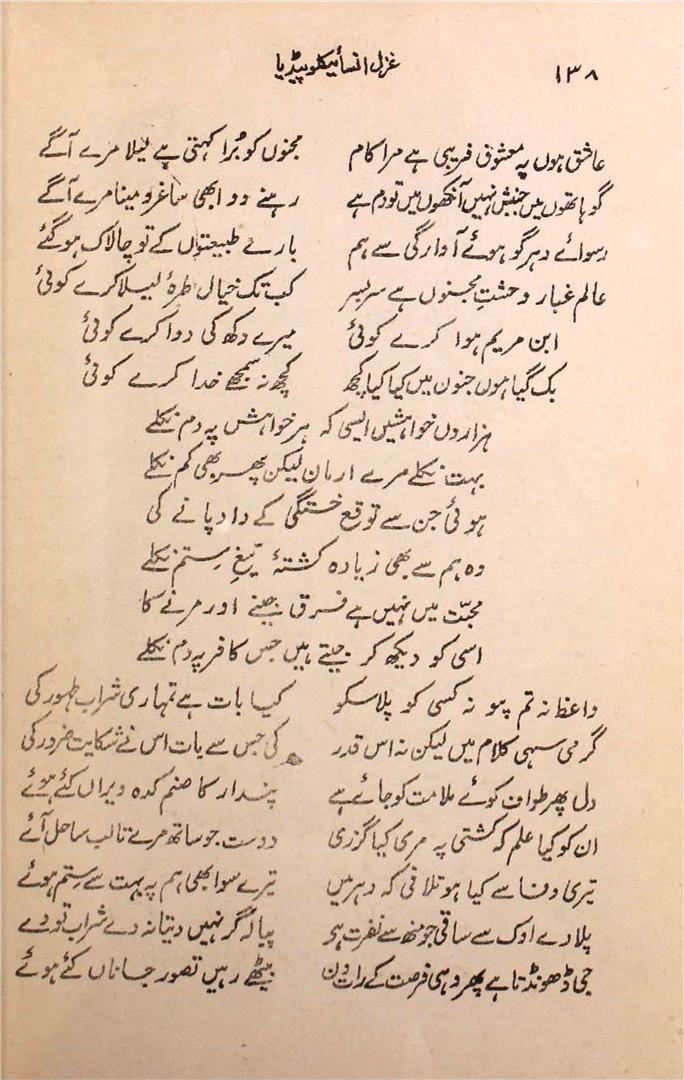 ۱۳۸ غزل انسائیکلوپیڈیا
عاشق ہوں پہ معشوق فریبی ہے مرا کام مجنوں کو بُرا کہتی ہے لیلا مرے آگے
گو ہاتھوں میں جنبش نہیں آنکھوں میں تو دم ہے رہنے دو ابھی ساغر و مینا مرے آگے
رسوائے دہر گو ہوئے آوارگی سے ہم بارے طبیعتوں کے تو چالاک ہو گئے
عالم غبار وحشتِ مجنوں ہے سربسر کب تک خیال طرۂ لیلا کرے کوئی
ابن مریم ہوا کرے کوئی میرے دکھ کی دوا کرے کوئی
بک گیا ہوں جنون میں کیا کیا کچھ کچھ نہ سمجھے خدا کرے کوئی
ہزاروں خواہشیں ایسی کہ ہر خواہش پہ دم نکلے
بہت نکلے مرے ارمان لیکن پھر بھی کم نکلے
ہوئی جن سے توقع خستگی کے داد پانے کی
وہ ہم سے بھی زیادہ کشتۂ تیغِ ستم نکلے
محبّت میں نہیں ہے فرق جینے اور مرنے کا
اسی کو دیکھ کر جیتے ہیں جس کافر پہ دم نکلے
واعظ نہ تم پیو نہ کسی کو پلا سکو کیا بات ہے تمہاری شراب طہور کی
گرمی سہی کلام میں لیکن نہ اس قدر کی جس سے بات اس نے شکایت ضرور کی
دل پھر طواف کوئے ملامت کو جائے ہے پندار کا صنم کدہ ویراں کئے ہوئے
ان کو کیا علم کہ کشتی پہ مری کیا گزری دوست جو ساتھ مرے تا لب ساحل آئے
تیری وفا سے کیا ہو تلافی کہ دہر میں تیرے سوا بھی ہم پہ بہت سے ستم ہوئے
پلا دے اوک سے ساقی جو منھ سے نفرت ہے پیالہ گر نہیں دیتا نہ دے شراب تو دے
جی ڈھونڈتا ہے پھر وہی فرصت کے رات دن بیٹھے رہیں تصور جاناں کئے ہوئے